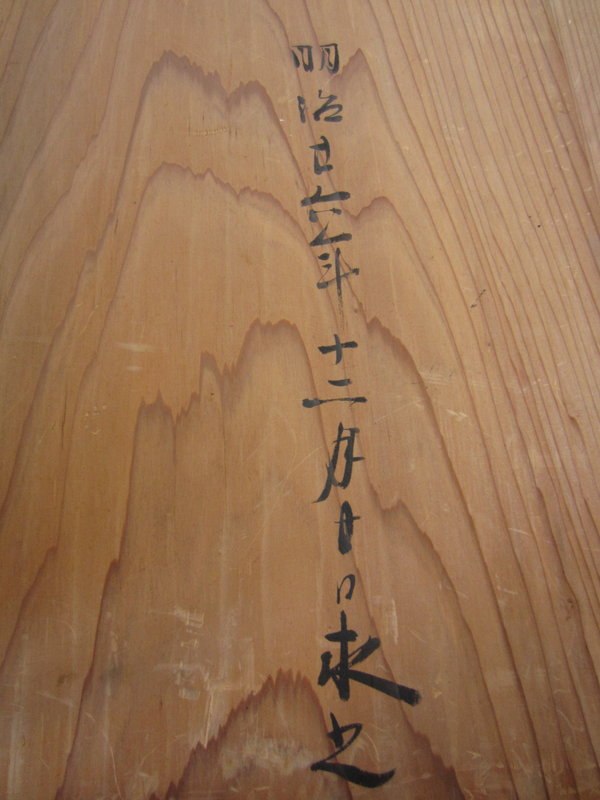 明治廿六年十二月廿日求之